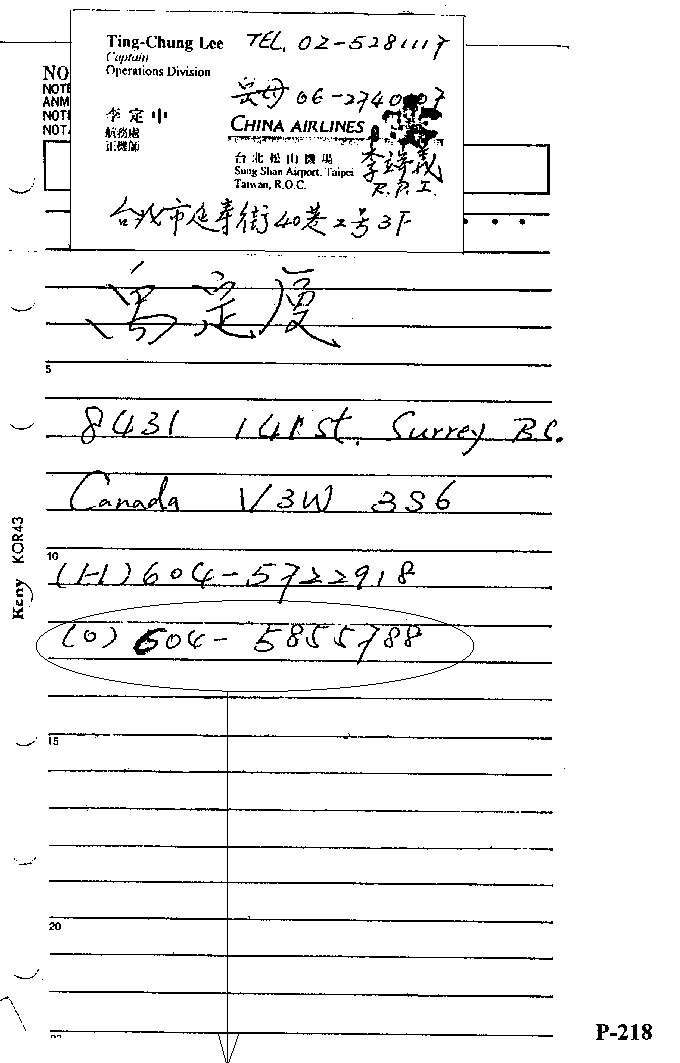 Ting-Chung Lee TEL. 02-5281117
Captain
Operations Division
岳母 06-2740
李定中
航務處
正機師
CHINA AIRLINES
台北松山機場
Sung Shan Airport, Taipei
Taiwan, R.O.C.
R.P.I.
台北市延壽街40巷2号3F
NO
NOTE
ANM
NOTI
NOT
5
8431 141st. Surrey B.C.
Canada V3W 3S6
10
(H) 604-5722918
(O) 604-5855788
Keny KOR43
15
20
P-218